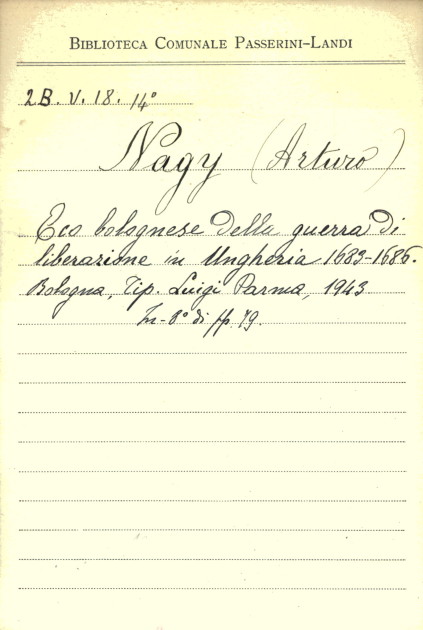 BIBLIOTECA COMUNALE PASSERINI-LANDI
2B. V. 18. 14°
Nagy (Arturo)
Eco bolognese della guerra di
liberazione in Ungheria 1683-1686.
Bologna, Tip. Luigi Parma, 1943
In-8° di pp. 79.